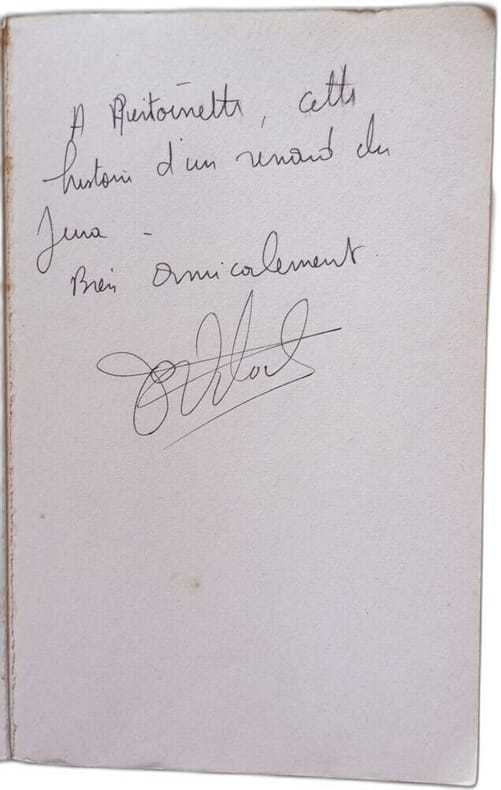 A , cette
histoire d'un renard du
Jura -
Bien amicalement.